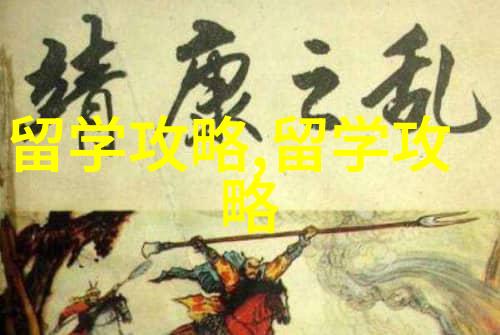 靖康之乱
留学攻略,留学攻
略